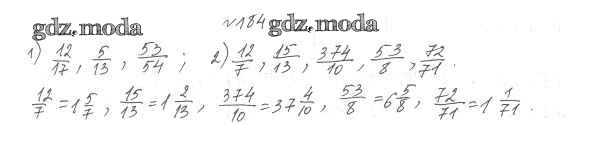 gdz.moda №184 gdz.moda
1) 12/17, 5/13, 53/54; 2) 12/7, 15/13, 374/10, 53/8, 72/71.
12/7 = 1 5/7, 15/13 = 1 2/13, 374/10 = 37 4/10, 53/8 = 6 5/8, 72/71 = 1 1/71.